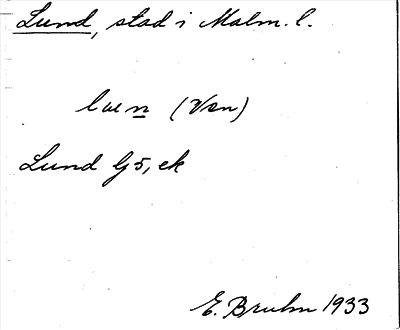 Lund, stad i Malm. l.
lun (Ven)
Lund G5, ek
E. Bruhn 1933